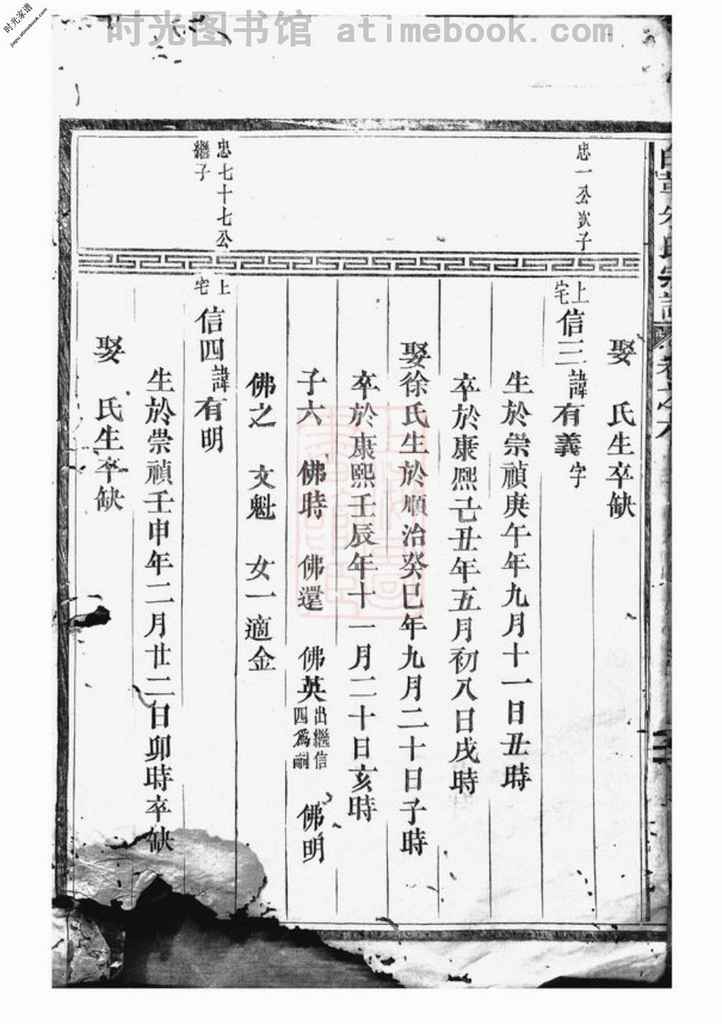 时光图书馆 atimebook.com
时光家谱
娶 氏生卒缺
忠一公次子
上宅信三諱有義字
生於崇禎庚午年九月十一日丑時
卒於康熙己丑年五月初八日戌時
娶徐氏生於順治癸巳年九月二十日子時
卒於康熙壬辰年十一月二十日亥時
子六 佛時 佛還 佛英出繼信四為嗣 佛明
佛之 文魁 女一適金
忠七十七公繼子
上宅信四諱有明
生於崇禎壬申年二月廿二日卯時卒缺
娶 氏生卒缺